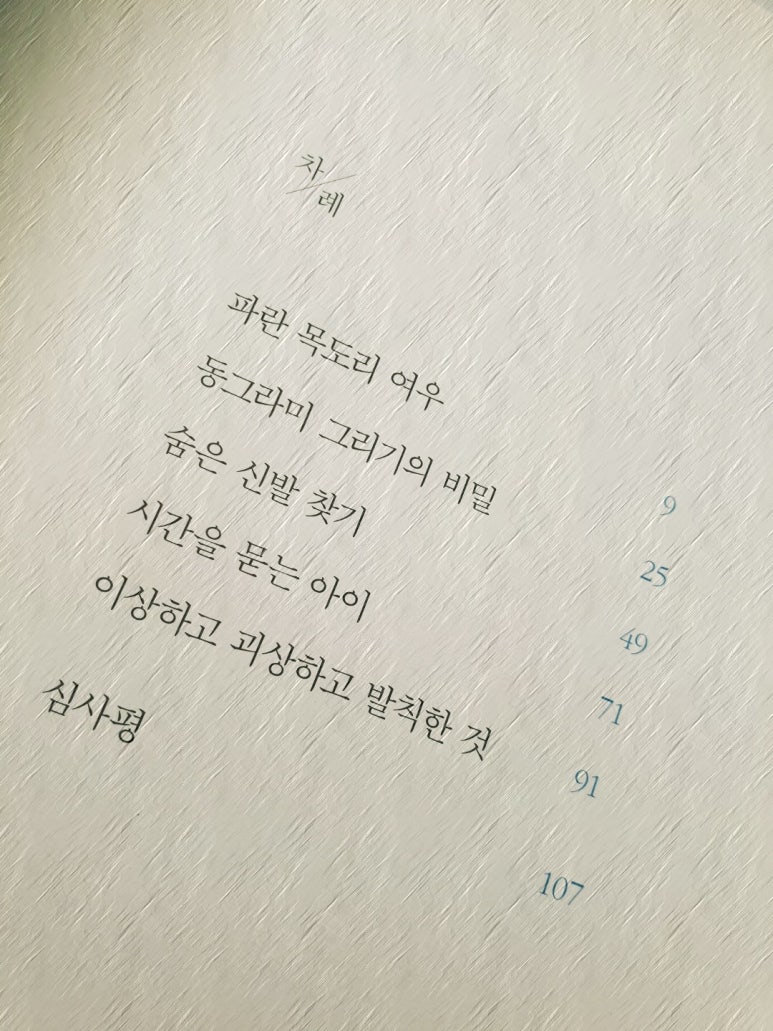 차/례
파란 목도리 여우 9
동그라미 그리기의 비밀 25
숨은 신발 찾기 49
시간을 묻는 아이 71
이상하고 괴상하고 발칙한 것 91
심사평 107